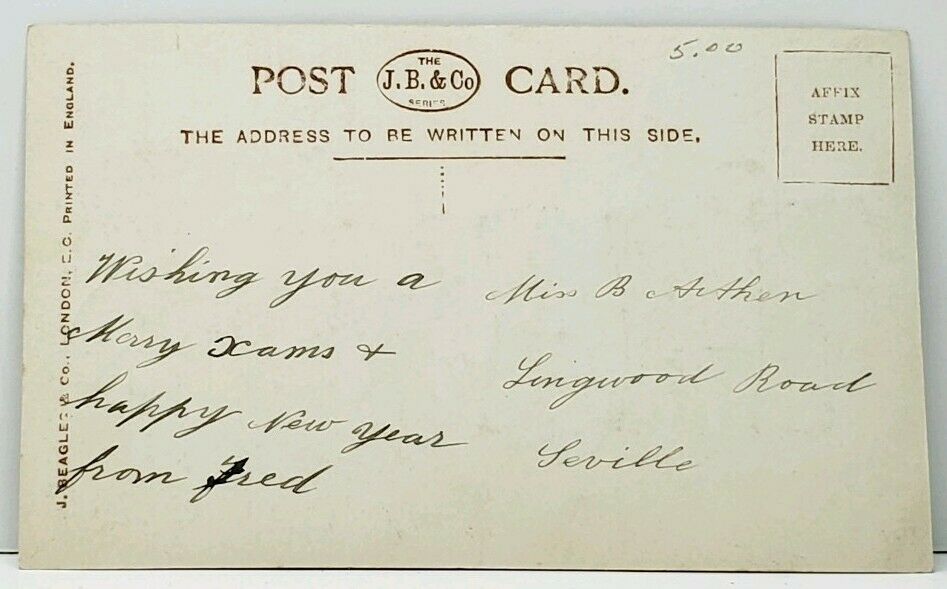 5.00
POST CARD.
THE
J.B. & Co
SERIES
THE ADDRESS TO BE WRITTEN ON THIS SIDE.
AFFIX
STAMP
HERE.
J. BEAGLES & Co., LONDON, E.C. PRINTED IN ENGLAND.
Wishing you a
Merry Xams +
happy New Year
from Fred
Miss B
Lingwood Road
Seville